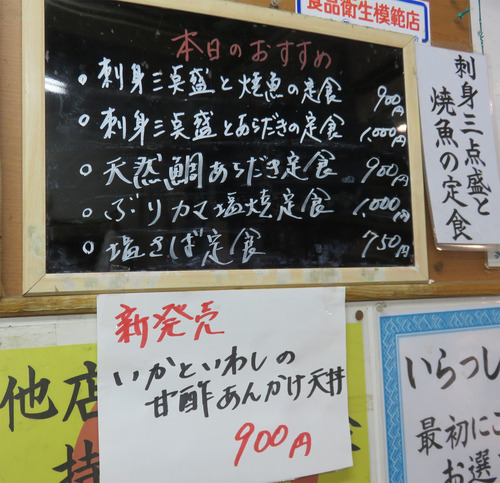 食品衛生模範店
本日のおすすめ
刺身三点盛と焼魚の定食 900円
刺身三点盛とあらだきの定食 1,000円
天然鯛あらだき定食 900円
ぶりカマ塩焼定食 1,000円
塩さば定食 750円
刺身三点盛と
焼魚の定食
新発売
いかといわしの
甘酢あんかけ天丼
900円
他店
持
いらっし
最初にご
お選